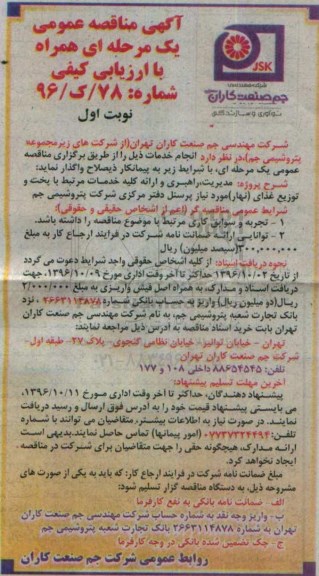 آگهی مناقصه عمومی
یک مرحله ای همراه
با ارزیابی کیفی
شماره: ۷۸/ک/۹۶
نوبت اول
JSK
شرکت مهندسی
جم صنعت کاران
نوآوری و سازندگی
شرکت مهندسی جم صنعت کاران تهران(از شرکت های زیرمجموعه
پتروشیمی جم)،در نظر دارد انجام خدمات ذیل را از طریق برگزاری مناقصه
عمومی یک مرحله ای، با شرایط زیر به پیمانکار ذیصلاح واگذار نماید:
شرح پروژه: مدیریت،راهبری و ارائه کلیه خدمات مرتبط با پخت و
توزیع غذای (نهار)مورد نیاز پرسنل دفتر مرکزی شرکت پتروشیمی جم
شرایط عمومی مناقصه گر (اعم از اشخاص حقیقی و حقوقی):
۱ - تجربه و سوابق کاری مرتبط با موضوع مناقصه را داشته باشد.
۲ - توانایی ارائه ضمانت نامه شرکت در فرایند ارجاع کار به مبلغ
۳۰۰،۰۰۰،۰۰۰(سیصد میلیون) ریال
نحوه دریافت اسناد: از کلیه اشخاص حقوقی واجد شرایط دعوت می گردد
از تاریخ ۱۳۹۶/۱۰/۰۲ حداکثر تا آخر وقت اداری مورخ ۱۳۹۶/۱۰/۰۹، جهت
دریافت اسناد و مدارک، به همراه اصل فیش واریزی به مبلغ ۲/۰۰۰/۰۰۰
ریال(دو میلیون ریال) واریز به حساب بانکی شماره ۲۶۶۳۱۱۴۸۷۸ ، نزد
بانک تجارت شعبه پتروشیمی جم، به نام شرکت مهندسی جم صنعت کاران
تهران بابت خرید اسناد مناقصه به آدرس ذیل مراجعه نمایند:
تهران - خیابان توانیر- خیابان نظامی گنجوی- پلاک ۲۷- طبقه اول-
شرکت جم صنعت کاران تهران
تلفن: ۸۸۶۵۴۵۴۵ داخلی ۱۰۸ و ۱۷۷
آخرین مهلت تسلیم پیشنهاد:
پیشنهاد دهندگان، حداکثر تا آخر وقت اداری مورخ ۱۳۹۶/۱۰/۱۱،
می بایستی پیشنهاد قیمت خود را به آدرس فوق ارسال و رسید دریافت
نمایند. در صورت نیاز به اطلاعات بیشتر، متقاضیان می توانند با شماره
تلفن: ۰۷۷۳۷۳۲۴۴۹۴ (امور پیمانها) تماس حاصل نمایند.بدیهی است
ارائه مدارک، هیچگونه حقی را جهت متقاضیان برای شرکت در مناقصه
ایجاد نخواهد کرد.
مبلغ ضمانت نامه شرکت در فرایند ارجاع کار: که باید به یکی از صورت های
مشروحه ذیل، به دستگاه مناقصه گزار تسلیم شود:
الف - ضمانت نامه بانکی به نفع کارفرما
ب - واریز وجه نقد به شماره حساب شرکت مهندسی جم صنعت کاران
تهران به شماره ۲۶۶۳۱۱۴۸۷۸ بانک تجارت شعبه پتروشیمی جم
ج - چک تضمین شده بانکی در وجه کارفرما
روابط عمومی شرکت جم صنعت کاران